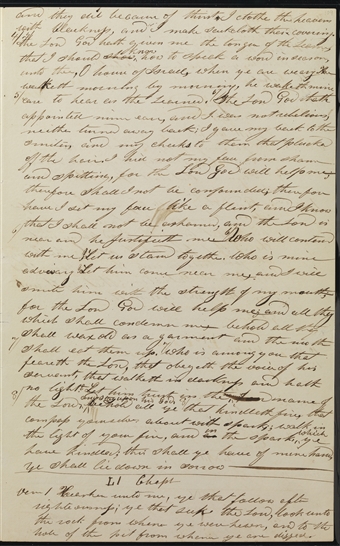 and they die because of thirst I clothe the heavens
with blackness, and I make sackcloth their covering
The Lord God hath given me the tongue of the learned
that I should know how to speak a word in season
unto thee, O house of Israel, when ye are weary he
waketh morning by morning, he waketh mine
ear to hear as the learned The Lord God hath
appointed mine ear, and I was not rebellious
neither turned away back, I gave my back to the
smiters and my cheeks to them that plucked
off the hair I hid not my face from shame
and spitting, for the Lord God will help me
therefore shall I not be confounded, therefore
have I set my face like a flint and I know
that I shall not be ashamed, and the Lord is
near and he justifieth me Who will contend
with me let us stand together Who is mine
adversary Let him come near me, and I will
smite him with the strength of my mouth
for the Lord God will help me and all they
which shall condemn me behold all they
shall wax old as a garment and the moth
shall eat them up, Who is among you that
feareth the Lord, that obeyeth the voice of his
servant, that walketh in darkness and hath
no light Let him trust in the name of
the Lord, Behold all ye that kindleth fire, that
compass yourselves about with sparks, walk in
the light of your fire, and in the sparks which ye
have kindled, this shall ye have of mine hand
ye shall lie down in sorrow
LI Chapt
ver 1 Hearken unto me, ye that follow after
righteousness, ye that seek the Lord, look unto
the rock from whence ye were hewn, and to the
hole of the pit from whence ye are digged